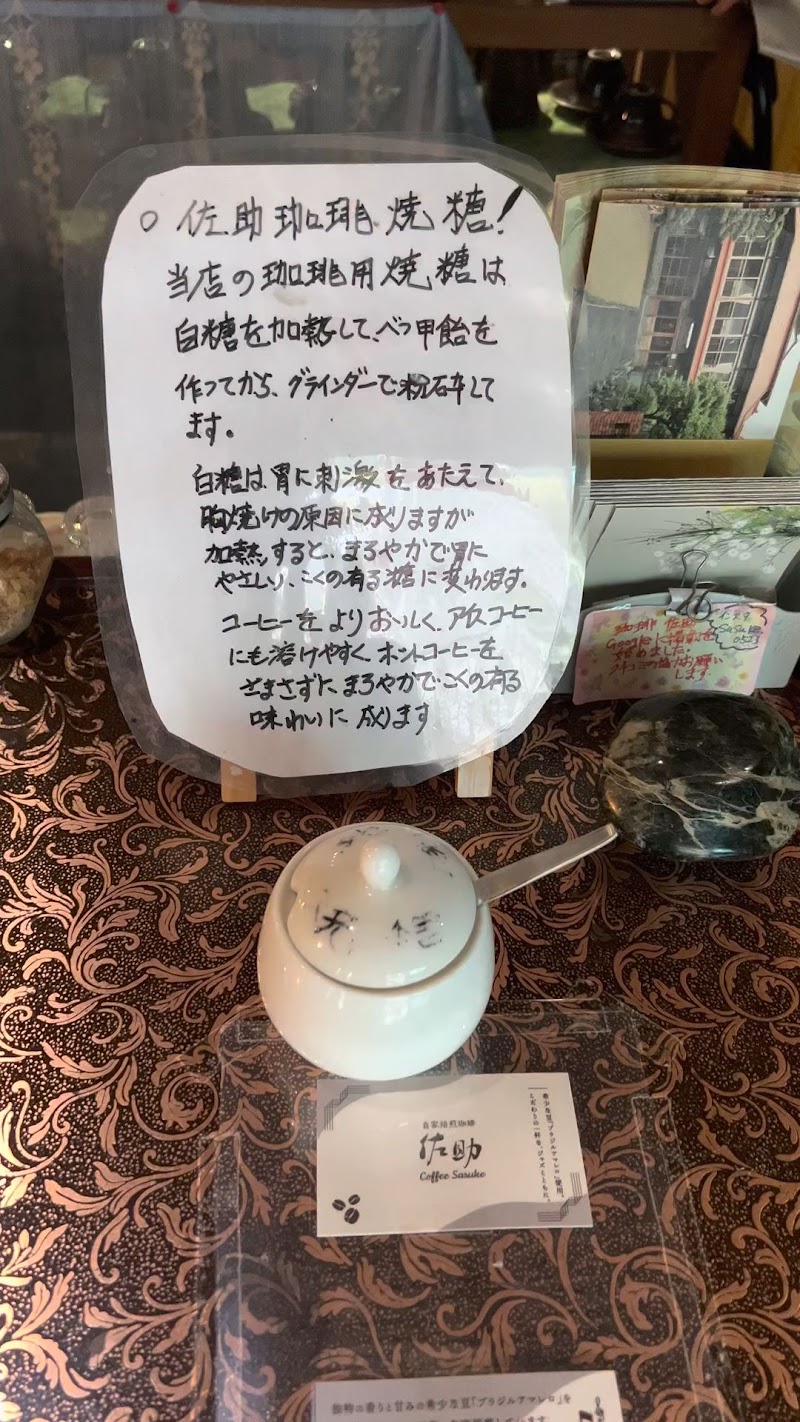 ○ 佐助珈琲焼糖!
当店の珈琲用焼糖は
白糖を加熱して、べっ甲飴を
作ってから、グラインダーで粉砕して
ます。
白糖は胃に刺激をあたえて、
胸焼けの原因に成りますが
加熱すると、まろやかで胃に
やさしい、こくの有る糖に変わります。
コーヒーをよりおいしく、アイスコーヒー
にも溶けやすく ホットコーヒーを
さまさずに まろやかでこくの有る
味わいに 成ります
珈琲 佐助
Googleに掲載を
始めました。
クチコミの協力お願い
します
焼 糖
自家焙煎珈琲
佐助
Coffee Sasuke
希少な豆「ブラジルアマレロ」使用。
こだわりの一杯を、ジャズとともに。
独特の香りと甘みの希少な豆「ブラジルアマレロ」を